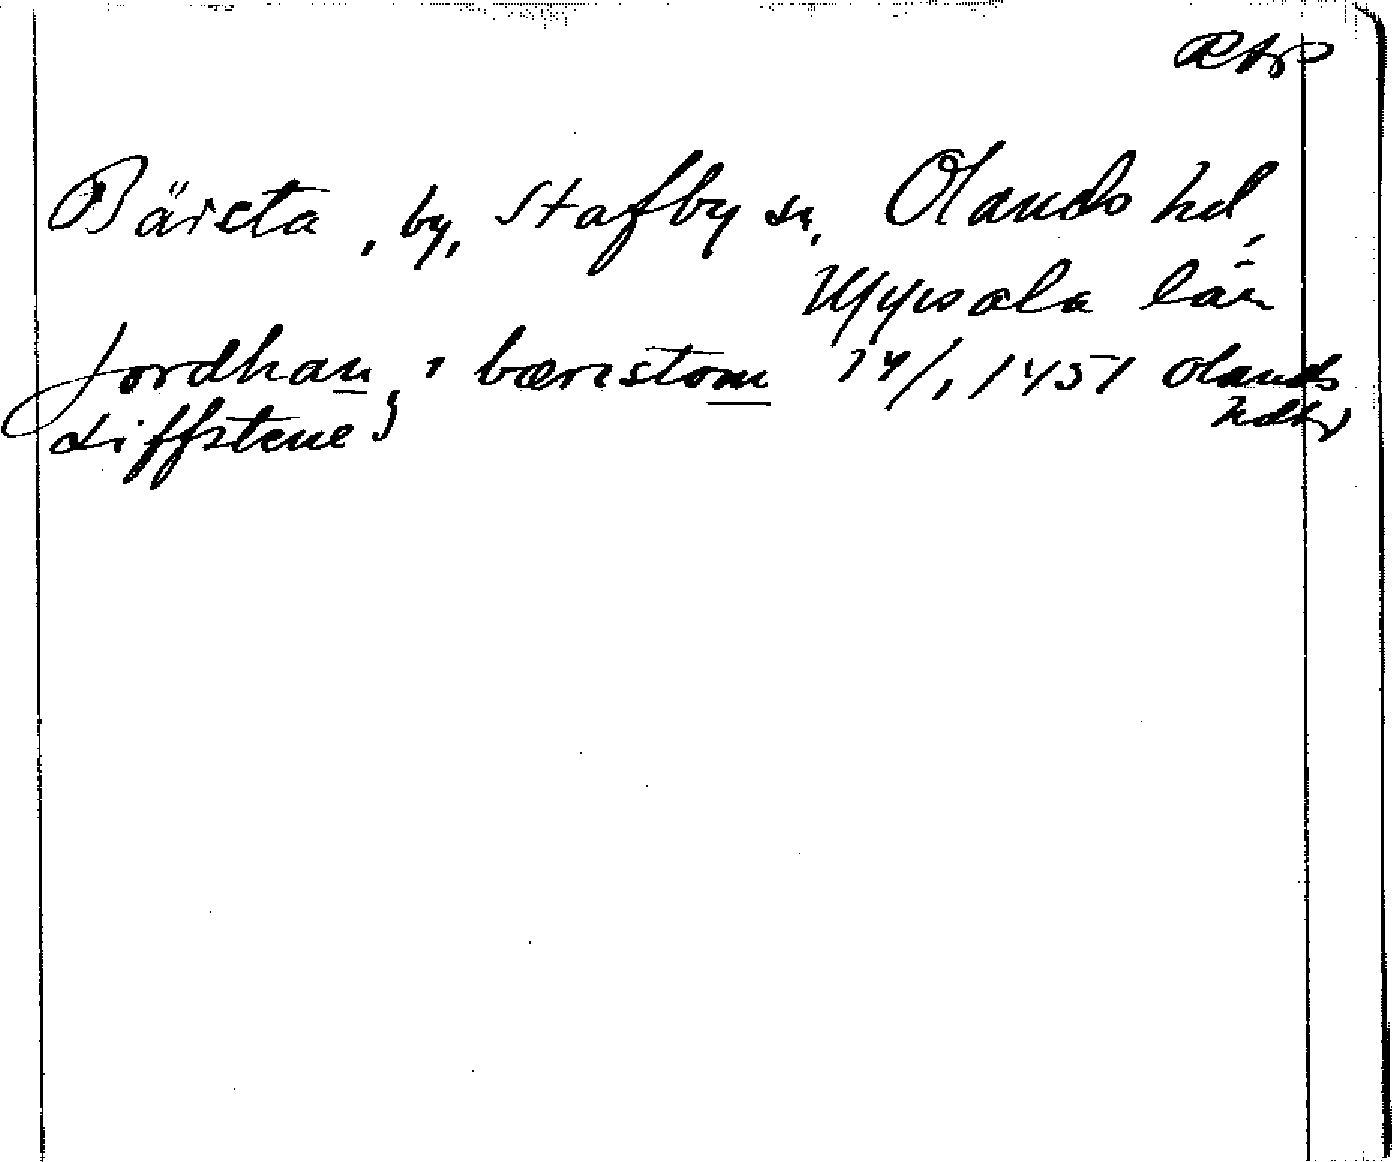 Bärsta, by, Stafby sn, Olands hd,
Uppsala län
Jordhan i bærestom 14/1 1451 Olands
Liffstene hdbr